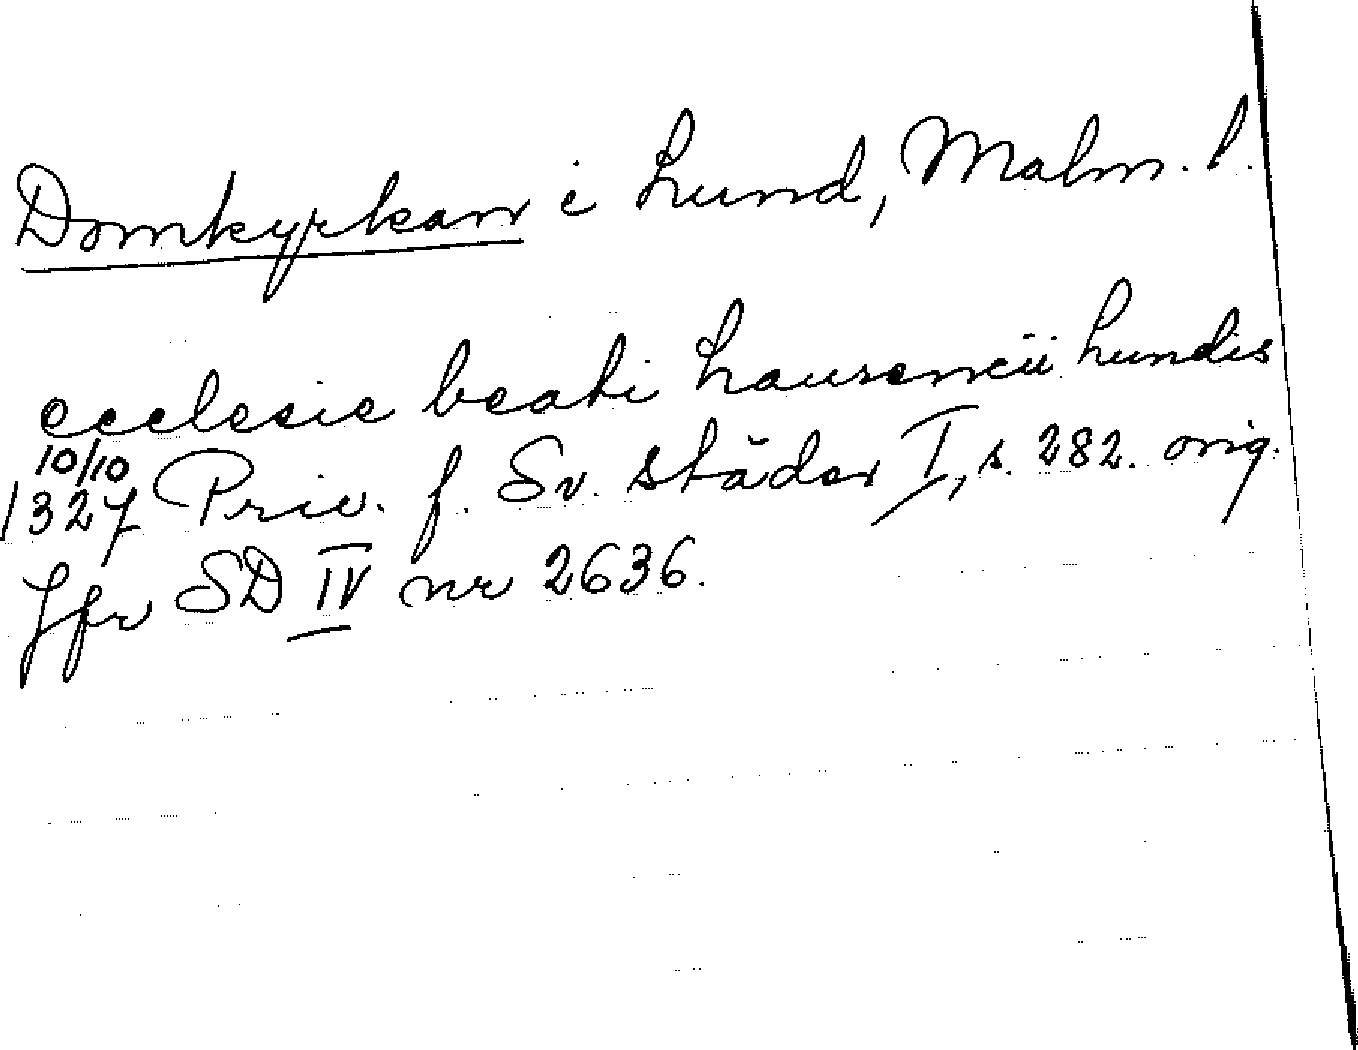 Domkyrkan i Lund, Malm. l.
ecclesie beati Laurencii Lundis
10/10
1327 Priv. f. Sv. städer I, s. 282. orig.
Jfr SD IV nr 2636.